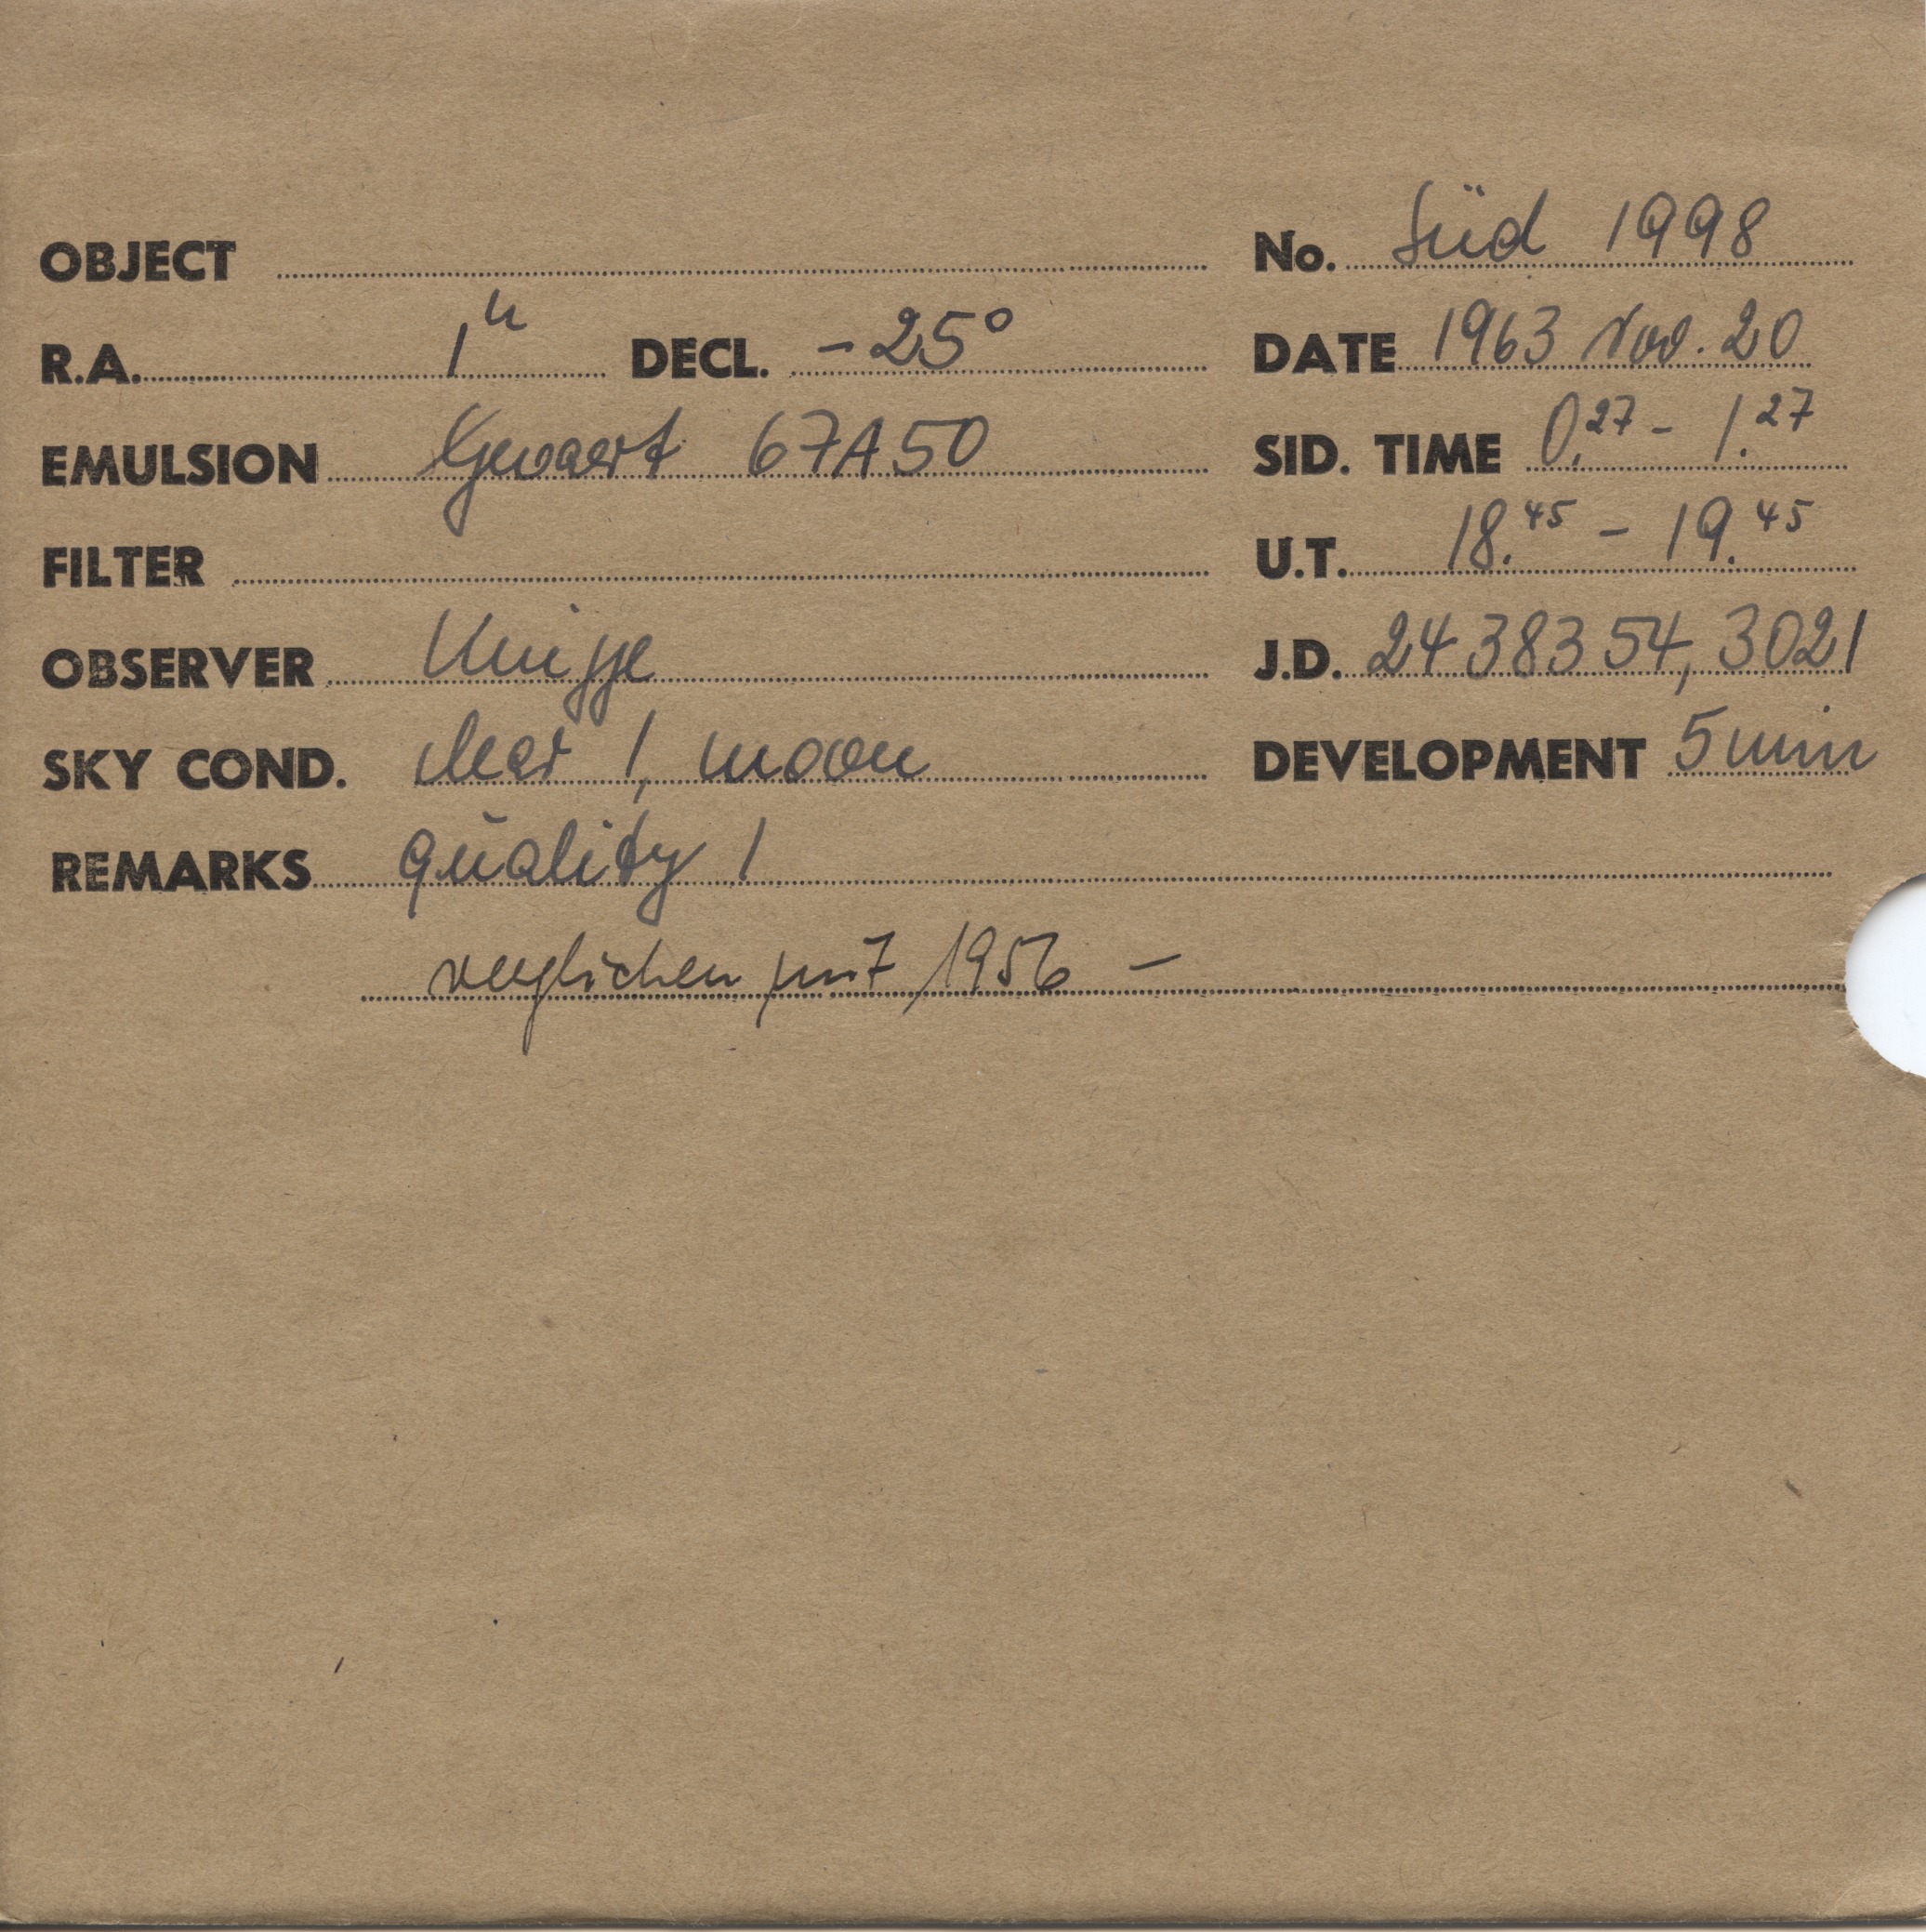 OBJECT No. Süd 1998
R.A. 1h DECL. -25° DATE 1963 Nov. 20
EMULSION Gevaert 67A50 SID. TIME 0.27 - 1.27
FILTER U.T. 18.45 - 19.45
OBSERVER Knigge J.D. 24 383 54, 3021
SKY COND. clear 1, moon DEVELOPMENT 5 min
REMARKS quality 1
verglichen mit 1956 -